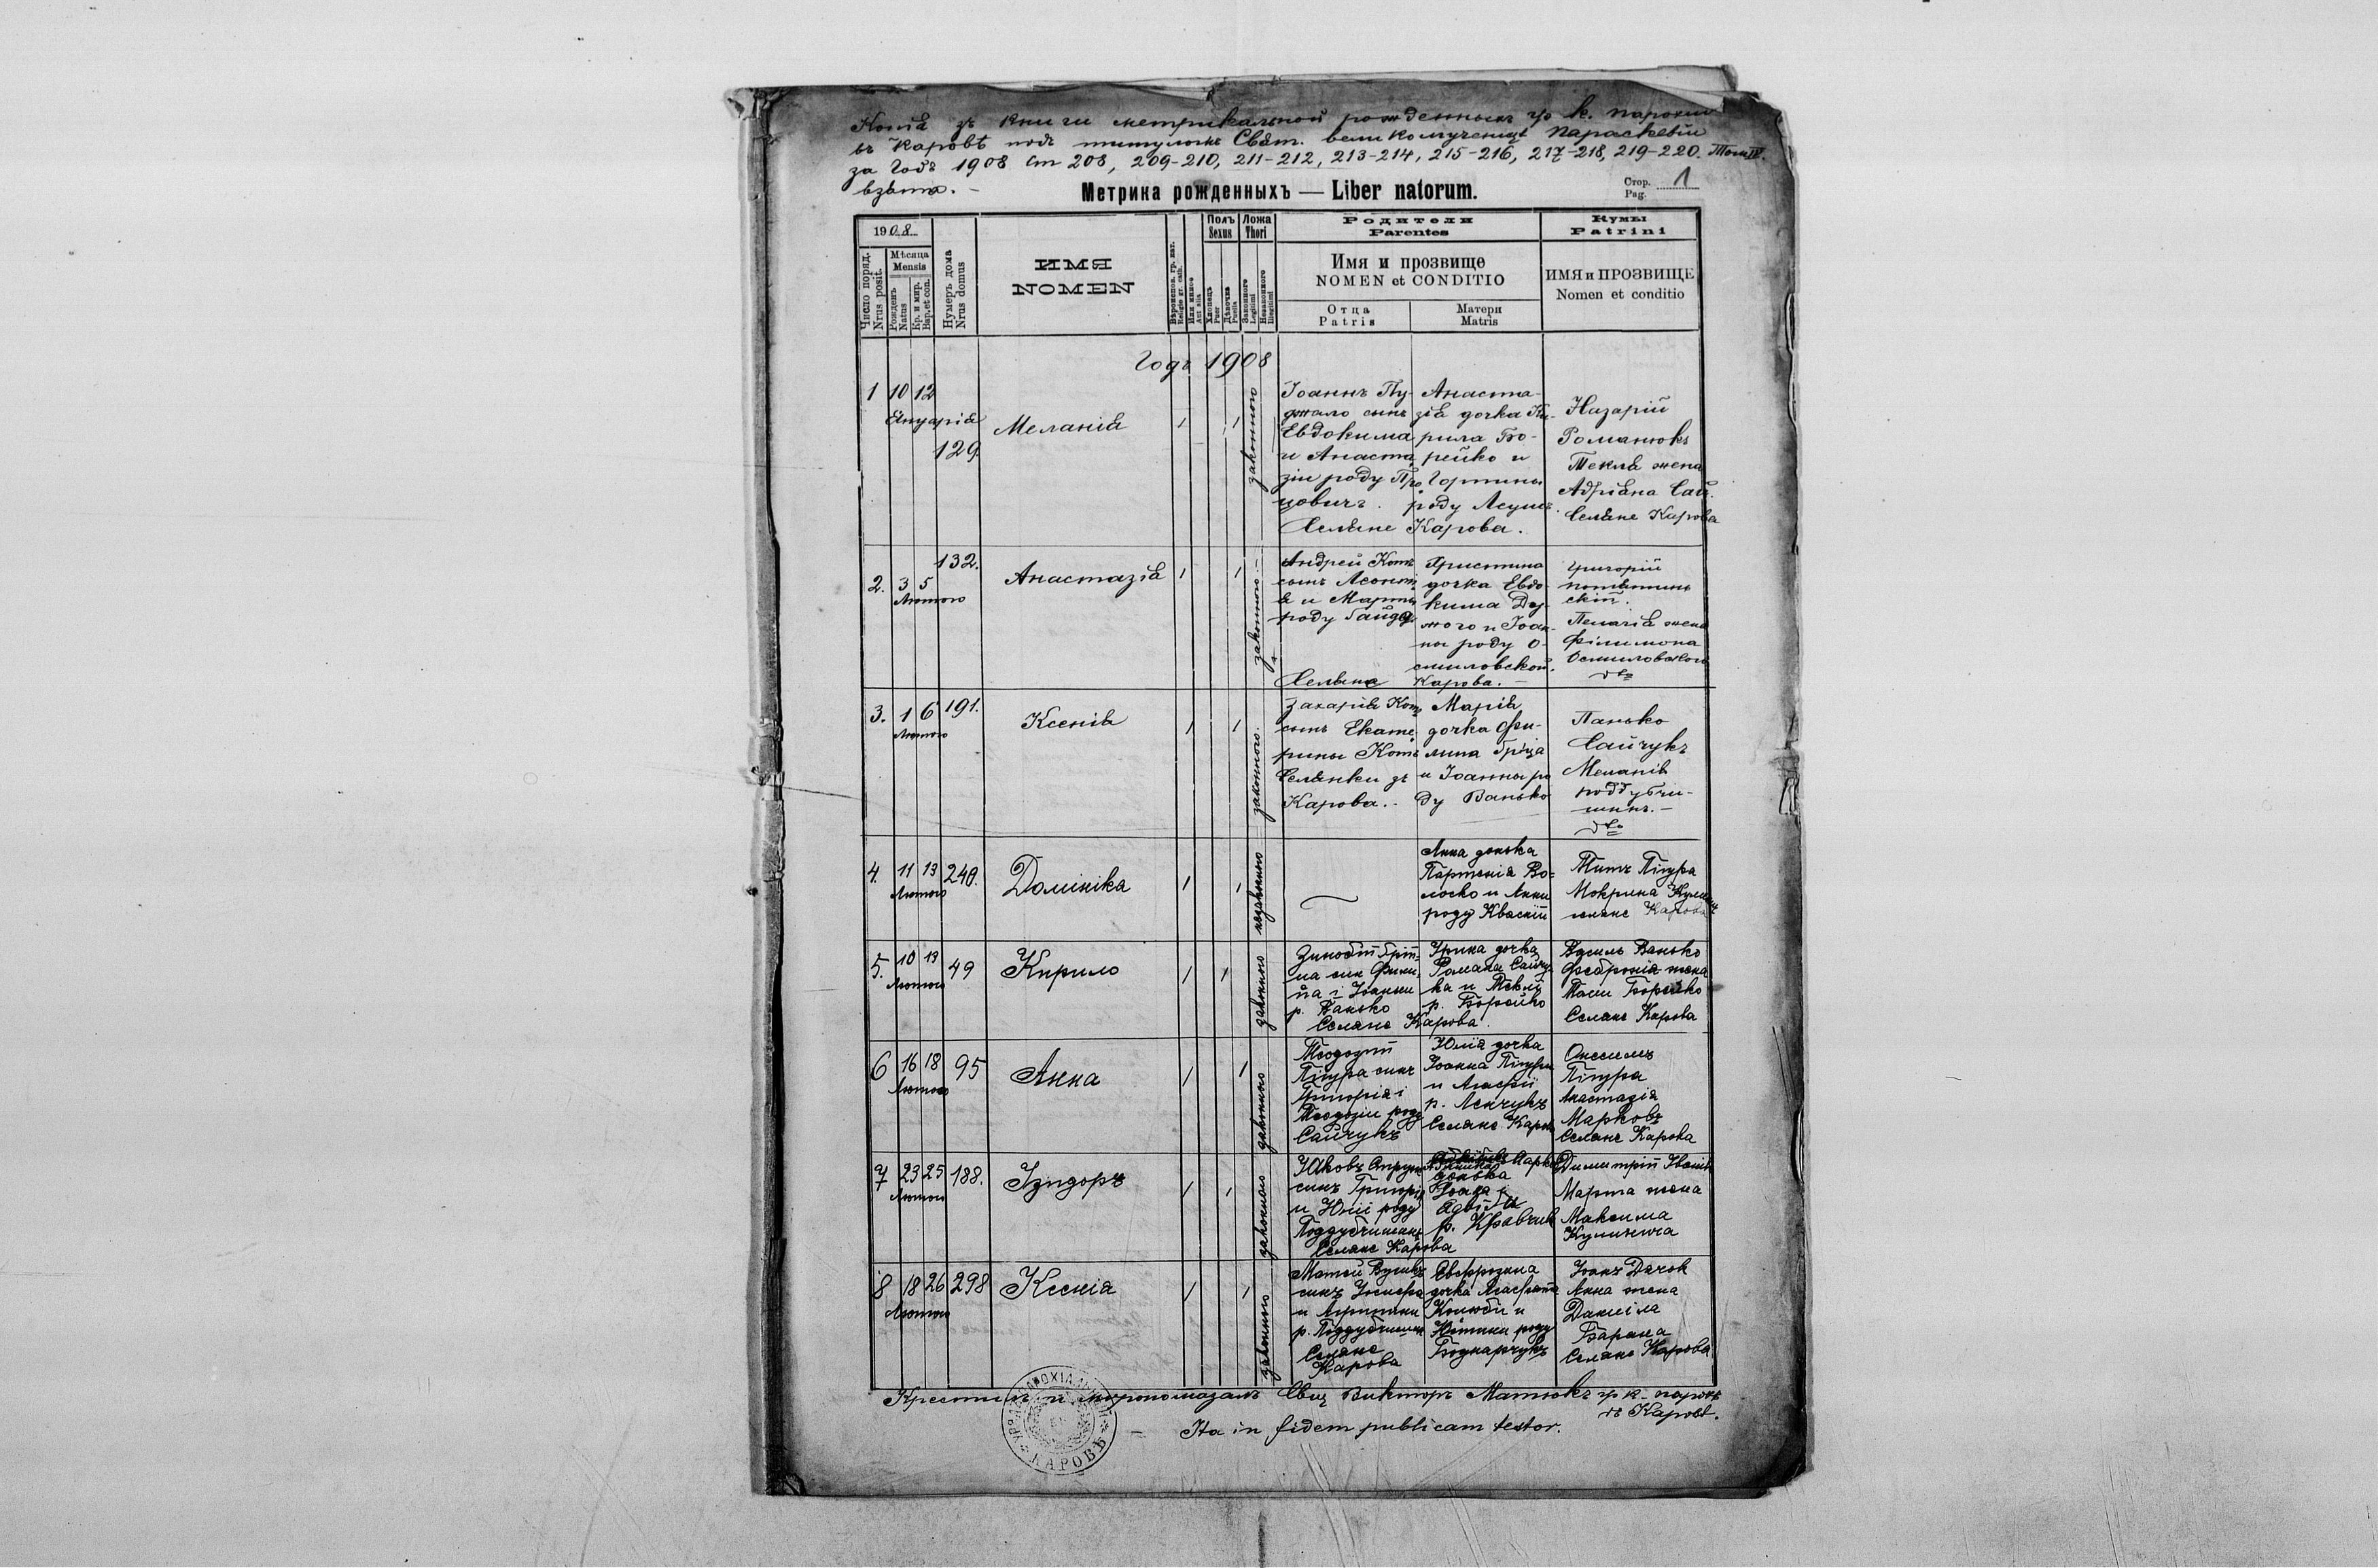 Копія зъ книги метрикальной рожденныхъ гр. к. парохіи
въ Каровѣ подъ титуломъ Свят. великомученицѣ Параскевіи
за Годъ 1908 ст 208, 209-210, 211-212, 213-214, 215-216, 217-218, 219-220. Томъ IV.
взята. -
Метрика рожденныхъ — Liber natorum.
Стор. Pag. 1
1908
Число поряд. Nrus posit.
Мѣсяца Mensis
Рожденъ Natus
Кр. и мир. Bap. et con.
Нумеръ дома Nrus domus
ИМЯ NOMEN
Вѣроиспов. гр. кат. Religio gr. cath.
Или инное Aut alia
Полъ Sexus
Хлопецъ Puer
Дѣвочка Puella
Ложа Thori
Законного Legitimi
Незаконного Illegitimi
Родители Parentes
Имя и прозвище NOMEN et CONDITIO
Отца Patris
Матери Matris
Кумы Patrini
ИМЯ и ПРОЗВИЩЕ Nomen et conditio
Годъ 1908
1 10 12
Януарія
129
Меланія
1 1
законного
Іоаннъ Пу-
джало сынъ
Евдокима
и Анаста
зіи роду Про
цовичъ.
Анаста-
зія дочка Ки-
рила Бо-
рейко и
Горпины
роду
Селяне Карова.
Назарій
Романюкъ
Текля жена
Адріана Сай.
Селяне Карова
2. 3 5
Лютого
132.
Анастазія
1 1
законного. -
Андрей Котъ
сынъ Леонті
я и Марты
роду Гайда
Христина
дочка Евдо-
кима Ду-
жого и Іоан-
ны роду О-
смиловской.
Селяне Карова. -
Григорій
ский.
Пелагія жена
Филимона
Осмиловского
dto
3. 1 6 191.
Лютого
Ксенія
1 1
законного.
Захарія Котъ
сынъ Екате
рины Котъ
Селянки зъ
Карова. -
Марія
дочка Фи-
липа Гріца
и Іоанны ро
ду Ванько
Панько
Сайчукъ
Меланія
Поддубчи-
шинъ. -
dto
4. 11 13 240.
Лютого
Домініка
1 1
незаконно
Анна донька
Партенія Во-
лоско и Анни
роду Кваскій
Титъ Пігура
Мокрина
селяне Карова
5. 10 13 49
Лютого
Кирило
1 1
законного
Зиновій
па син Фили-
па і Іоанни
р. Панько
Ірина дочка
Романа Сайчу
ка и Теклі
р. Борейко
Селяне Карова.
Василь Ванько
Февронія жена
Борейко
Селяне Карова
6 16 18 95
Лютого
Анна
1 1
законного
Теодозій
Пігура синъ
Григорія і
Теодозіи роду
Сайчукъ
Юлія дочка
Іоанна Пігури
и Агафії
р. Лекчукъ
Селяне Карова
Онесимъ
Пігура
Анастазія
Марковъ
Селяне Карова
7 23 25 188.
Лютого
Ізидоръ
1 1
законного
Яковъ
синъ Григорія
и Юлії роду
Поддубчишинъ
Селяне Карова
донька
р. Кравчик
Димитрій Іванів
Марта жена
Максима
Кулиневича
8 18 26 298
Лютого
Ксенія
1 1
законного
Матей
синъ Іосифа
и Агрипини
р. Поддубчишинъ
Селяне
Карова
Евфрозина
дочка Агафона
Коцюби и
Юстини роду
Боднарчукъ
Іоанъ Дячок
Анна жена
Даниіла
Барана
Селяне Карова
Крестилъ и миропомазалъ Свщ. Викторъ Матюкъ гр. к. парохъ
въ Каровѣ.
Ita in fidem publicam testor.
КАРОВѢ